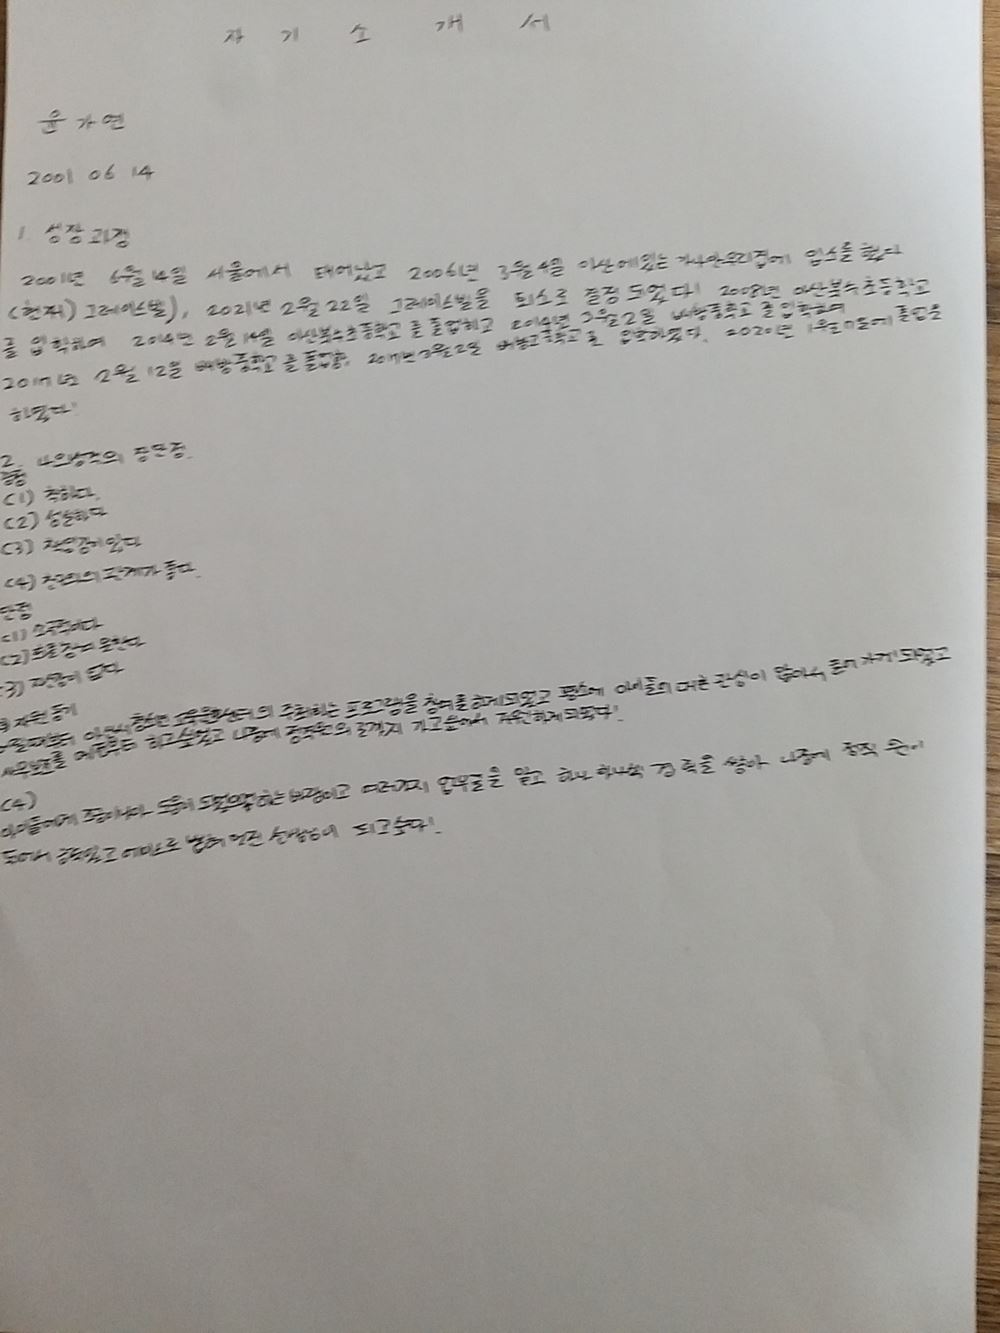 자 기 소 개 서
윤가연
2001 06 14
1. 성장과정
2001년 6월 14일 서울에서 태어났고 2006년 3월 4일 아산에있는 가나안우리집에 입소를 했다
(현재) 그레이스빌), 2021년 2월 22일 그레이스빌을 퇴소로 결정 되었다! 2008년 아산북수초등학교
를 입학하여 2014년 2월 14일 아산북수초등학교를 졸업하고 2014년 3월 2일 배방중학교를 입학하여
2017년 2월 12일 배방중학교를 졸업함. 2017년 3월 2일 배방고등학교를 입학하였다. 2020년 1월 에 졸업을
하였다!
2. 나의성격의 장단점.
장점
(1) 착하다.
(2) 성실하다
(3) 책임감이 있다
(4) 친구와의 관계가 좋다.
단점
(1) 소극적이다
(2) 표현 못한다
(3) 자신감이 없다.
지원동기
청소년 교육문화센터의 주최하는 프로그램을 참여를 하게되었고 평소에 아이들의 대한 관심이 많아서 들어 가게 되었고
하고싶었고 나중에 정직원의 가고 지원하게되었다!
(4)
아이들에게 도움이 하는 여러가지 업무들을 알고 하나 하나씩 경력을 쌓아 나중에 정직 원이
되어서 멋진 선생님이 되고싶다!